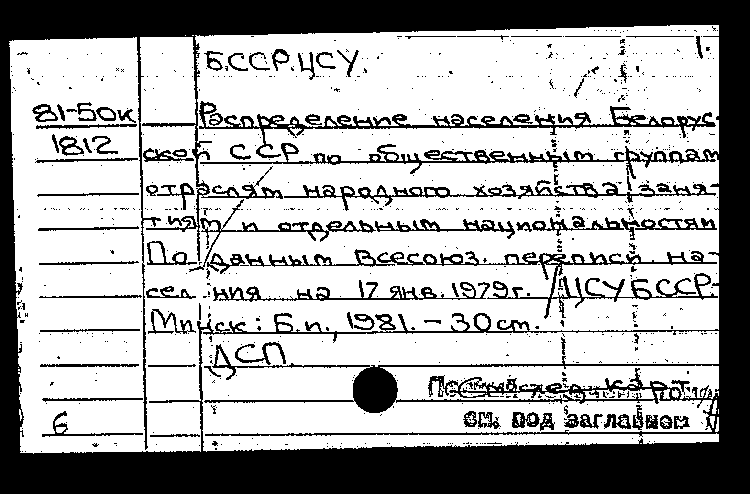 1.
Б.ССР.ЦСУ.
81-50к Распределение населения Белорус-
1812 ской ССР по общественным группам
отраслям народного хозяйства заня-
тиям и отдельным национальностям
По данным Всесоюз. переписи на-
сел ния на 17 янв. 1979г. / ЦСУ БССР.-
Минск: Б.и., 1981. - 30 ст.
ДСП.
карт.
см. под заглавием
6